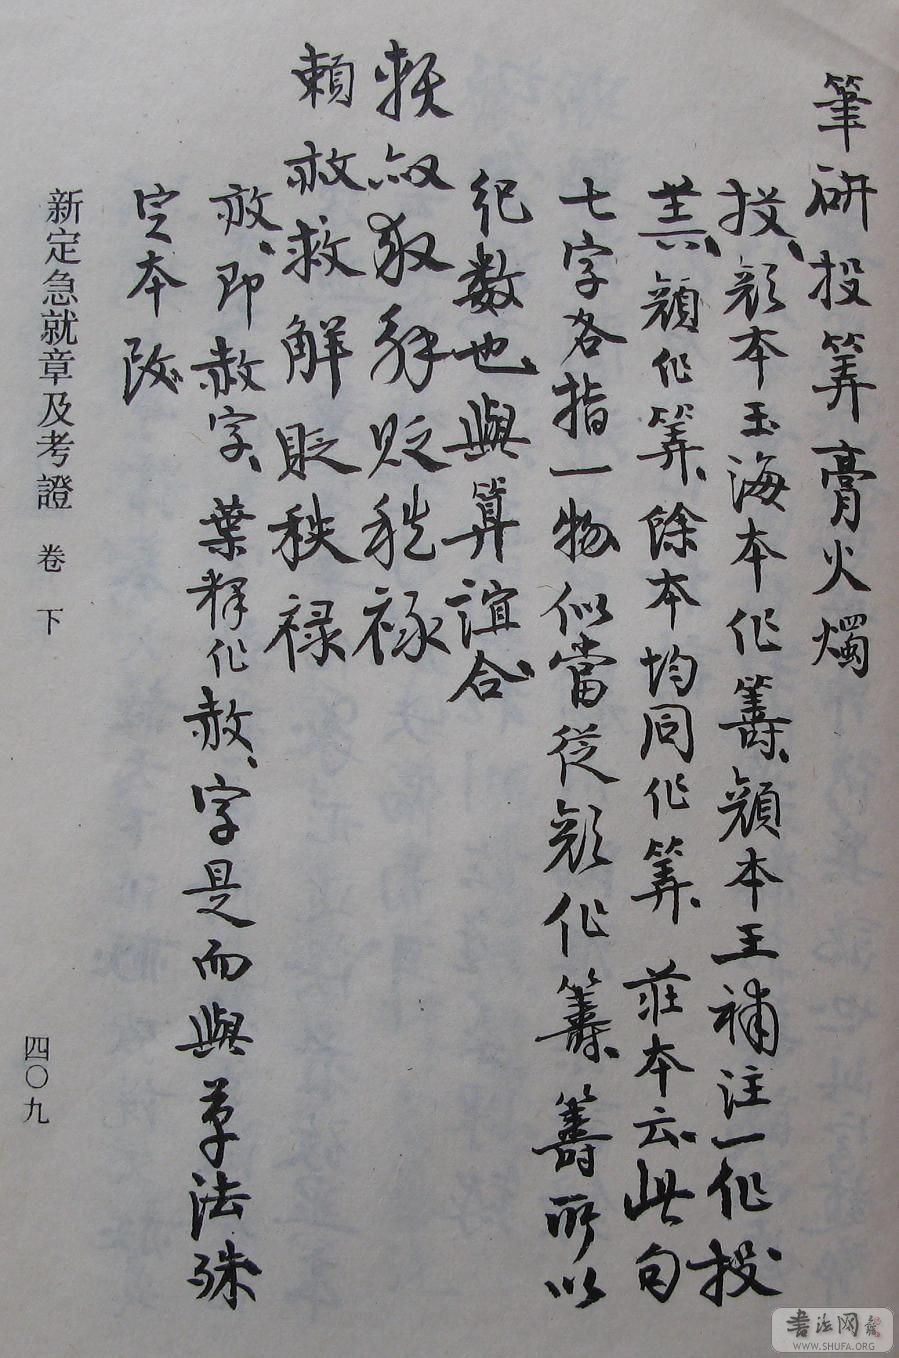 筆研投筭膏火燭
投、顔本玉海本作籌、顔本王補注一作投
其、顔作筭、餘本均同作筭、莊本云、此句
七字各指一物似當從顔作籌、籌所以
紀數也、與算誼合、
赦解貶秩祿
賴赦救解貶秩禄
赦、即赦字、葉釋作赦、字是而與草法殊
定本改
新定急就章及考證 卷下
四〇九
書法网
WWW.SHUFA.ORG